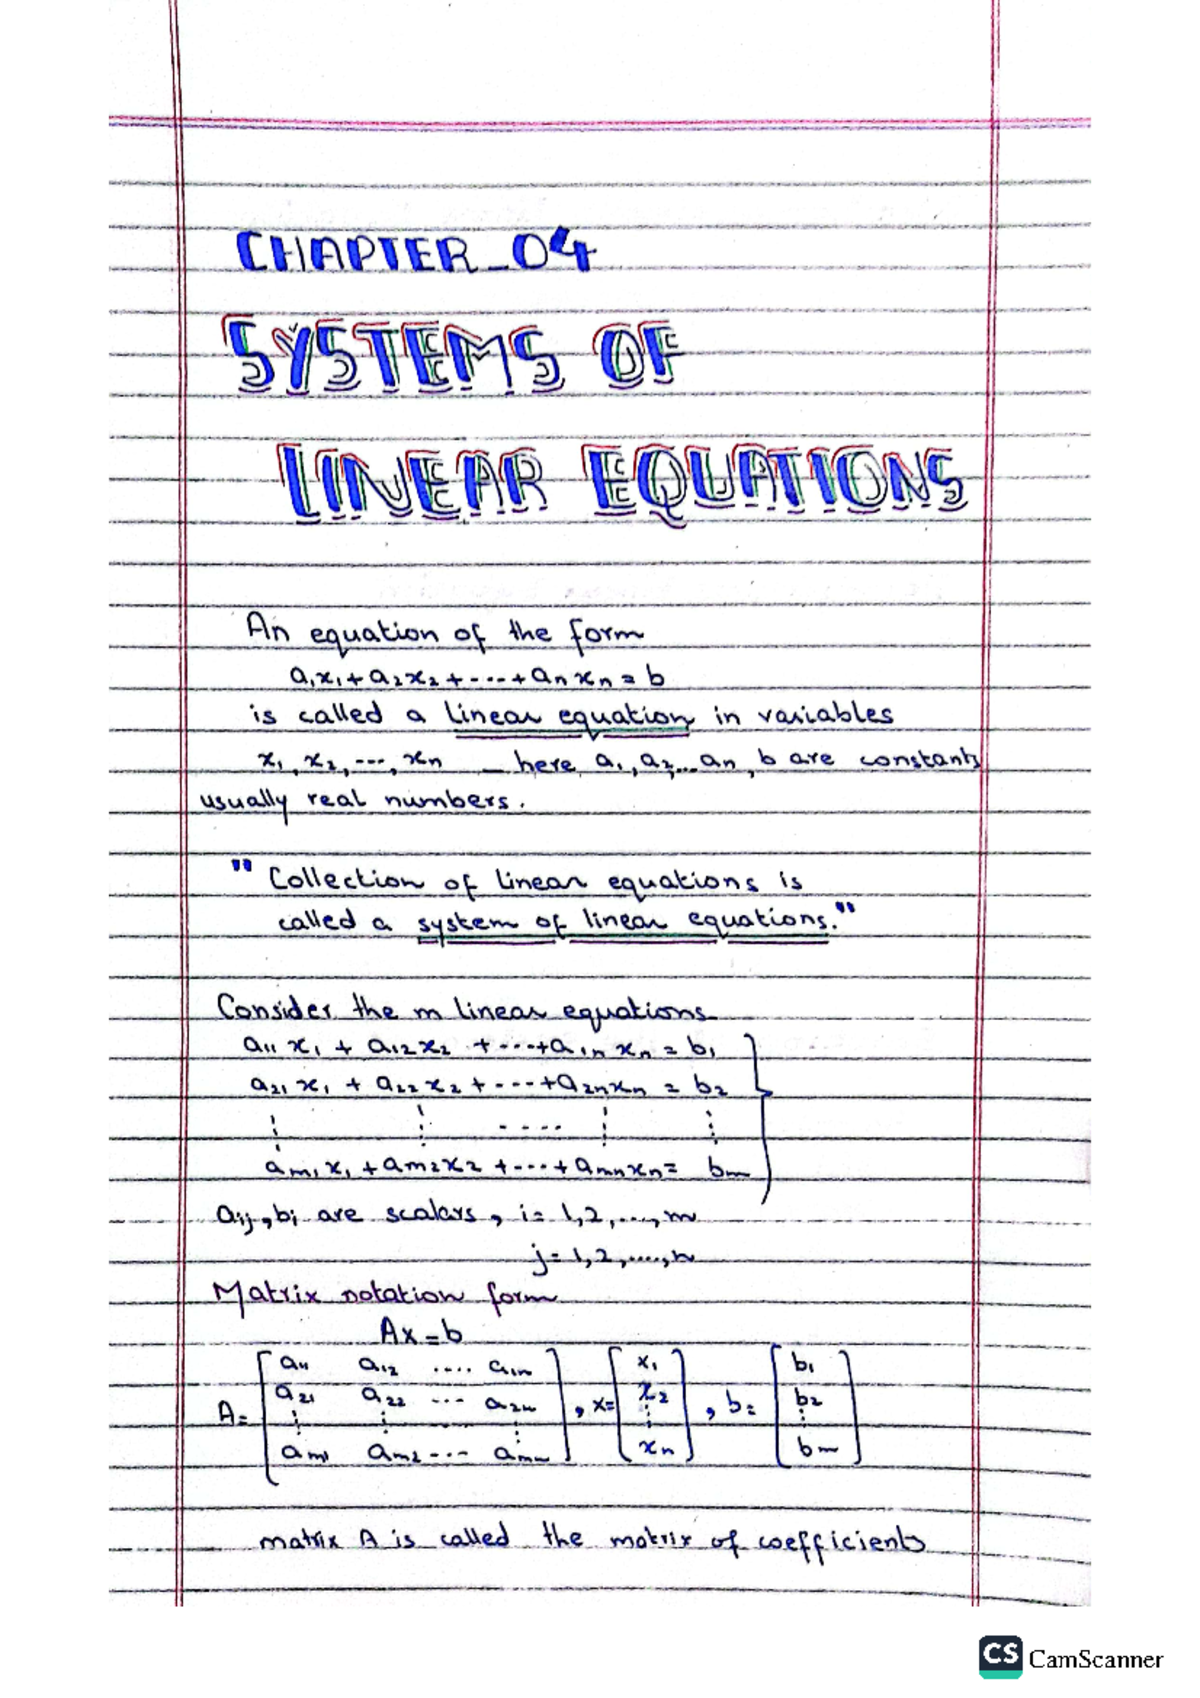 CHAPTER_04
SYSTEMS OF
LINEAR EQUATIONS
An equation of the form
a₁x₁ + a₂x₂ + ---- + aₙxₙ = b
is called a linear equation in variables
x₁, x₂, ---, xₙ _ here a₁, a₂, ... aₙ, b are constants
usually real numbers.
" Collection of linear equations is
called a system of linear equations."
Consider the m linear equations
a₁₁x₁ + a₁₂x₂ + ---- + a₁ₙxₙ = b₁
a₂₁x₁ + a₂₂x₂ + ---- + a₂ₙxₙ = b₂
⋮ ⋮ ---- ⋮ ⋮
aₘ₁x₁ + aₘ₂x₂ + ---- + aₘₙxₙ = bₘ
aᵢⱼ, bᵢ are scalars, i = 1,2,....,m
j = 1,2,....,n
Matrix notation form
Ax = b
A = [a₁₁ a₁₂ .... a₁ₙ], x = [x₁], b = [b₁]
a₂₁ a₂₂ --- a₂ₙ x₂ b₂
⋮ ⋮ ⋮ ⋮ ⋮
aₘ₁ aₘ₂ ---- aₘₙ xₙ bₘ
matrix A is called the matrix of coefficients
CS CamScanner